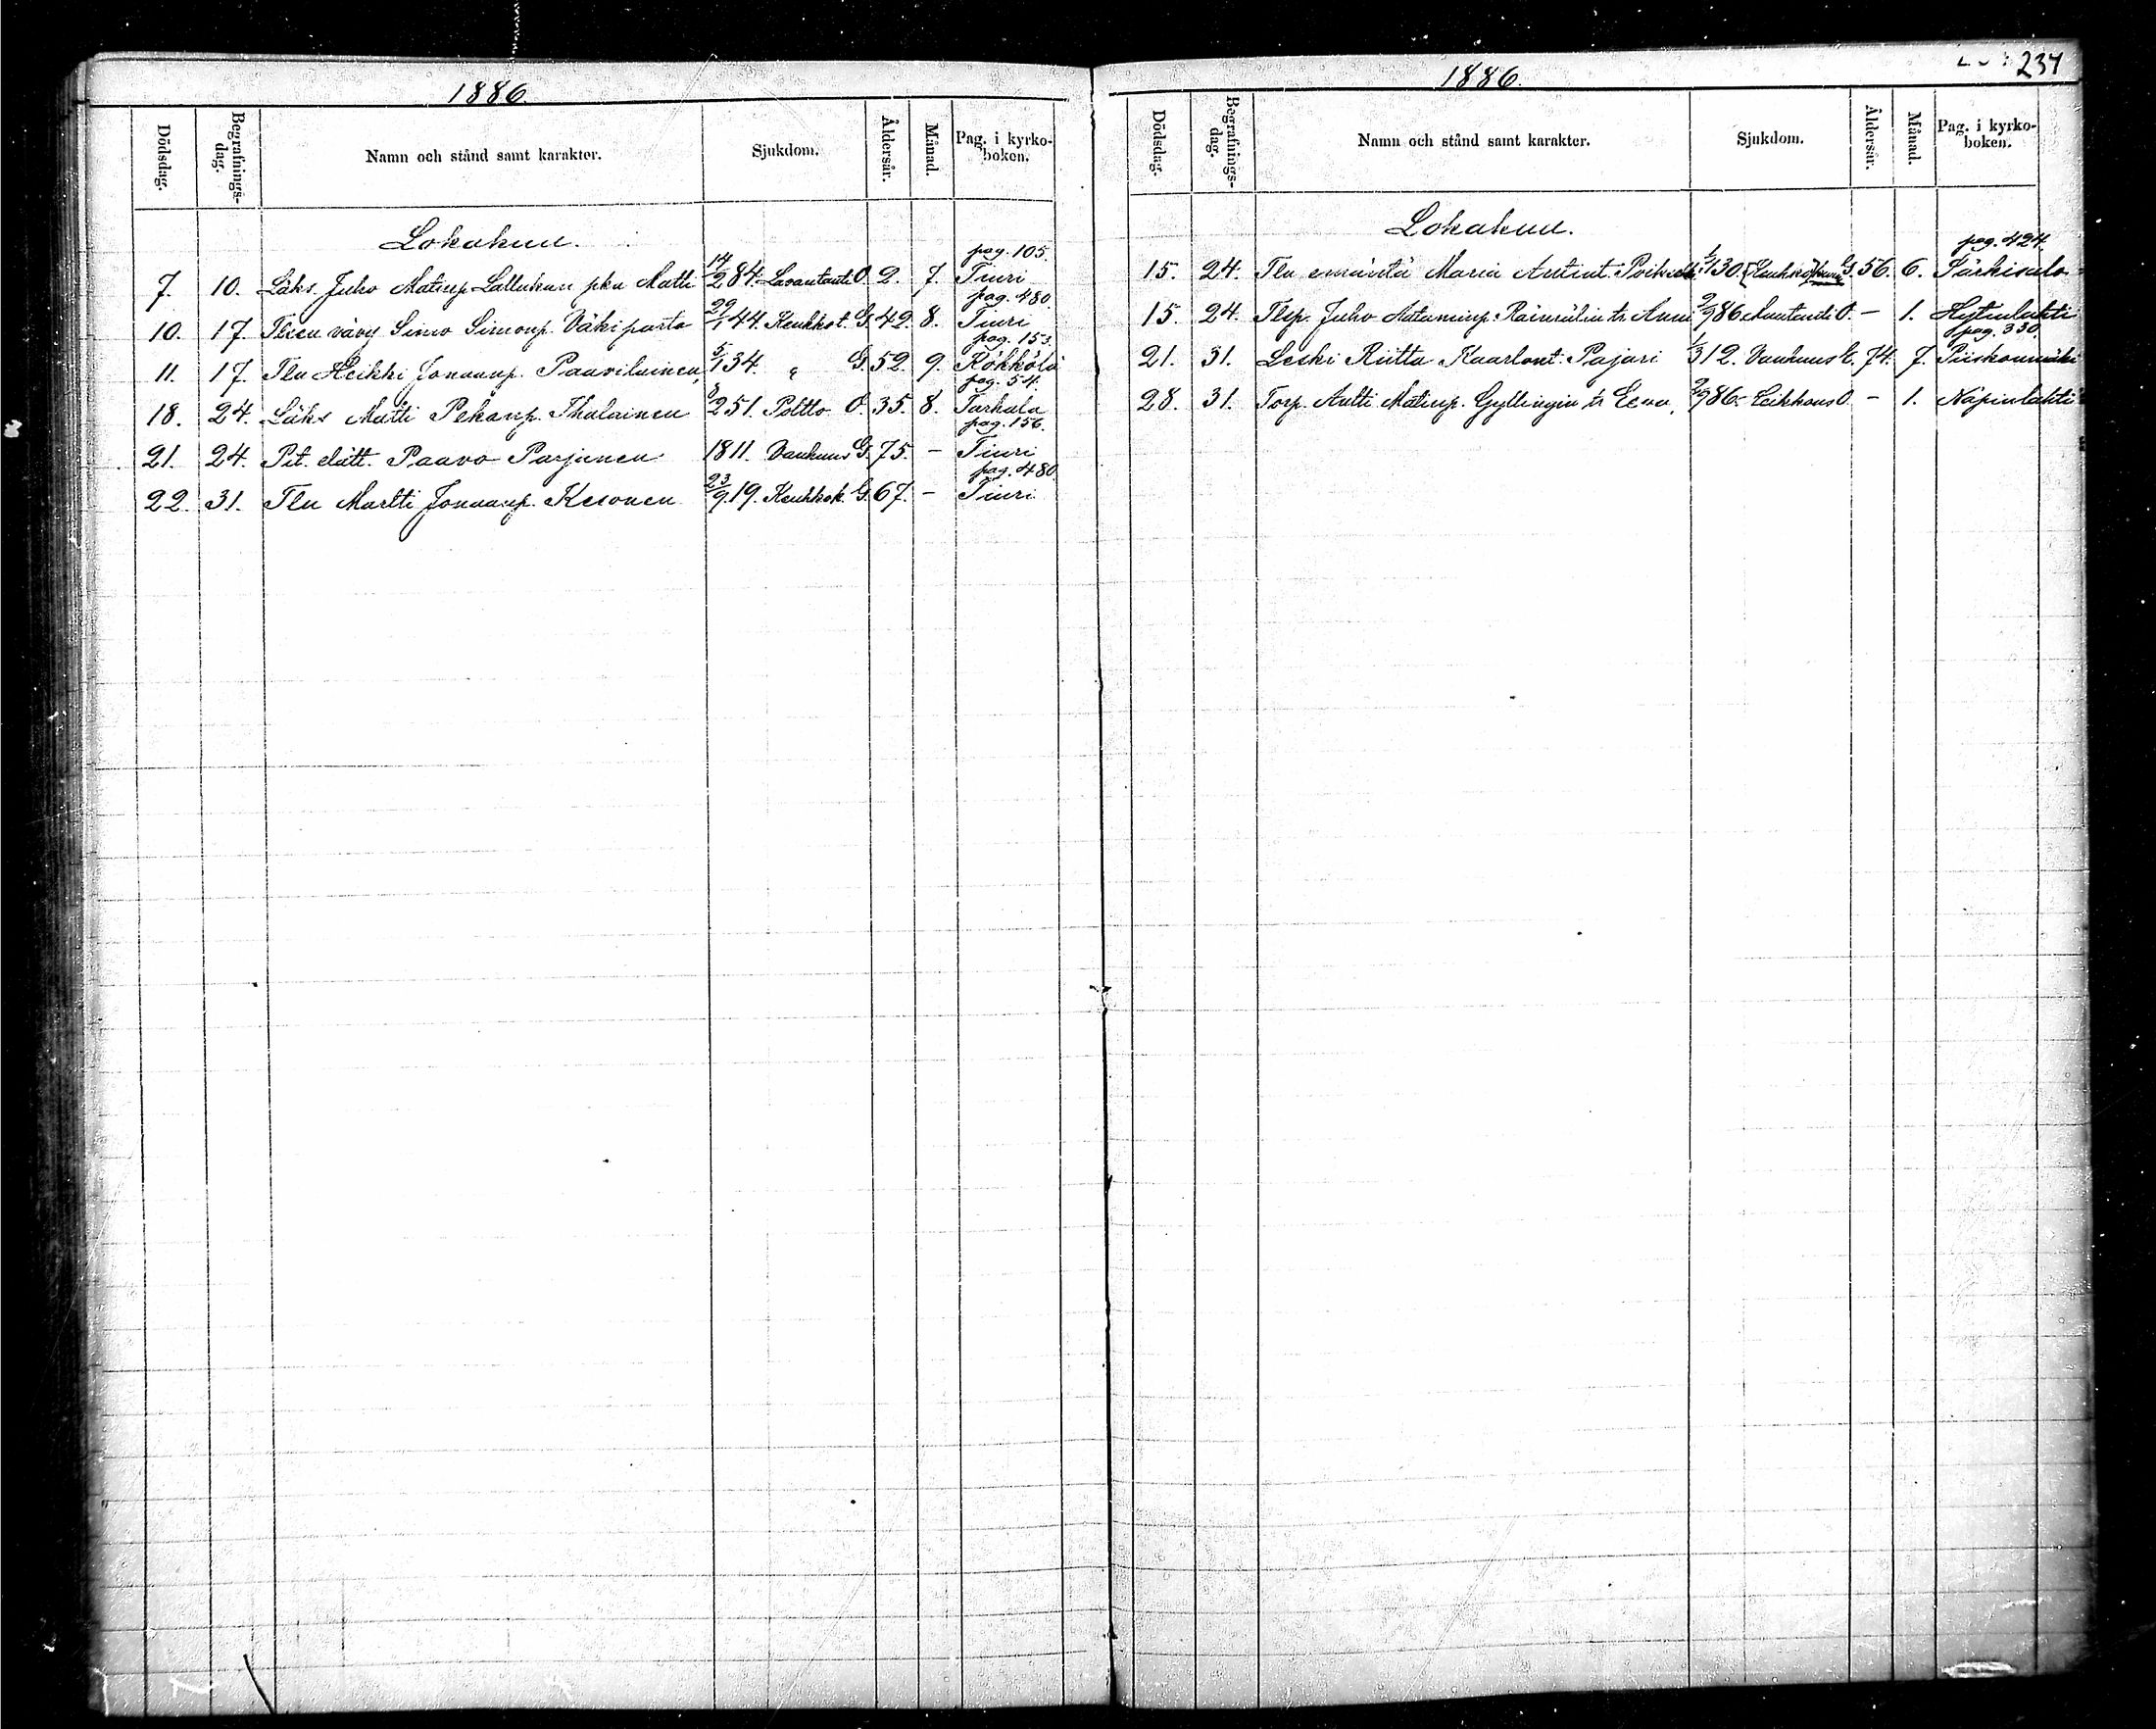 1886.
Dödsdag. Begrafningsdag. Namn och stånd samt karakter. Sjukdom. Åldersår. Månad. Pag. i kyrkoboken.
Lokakuu.
pag. 105.
7. 10. Läks. Juho Matinp. Lallukan pka Matti 14/2 84. Lavantauti O. 2. 7. Tiuri
pag. 480.
10. 17. Tlien vävy Simo Simonp. Väkiparta 29/1 44. Keuhkot. G. 42. 8. Tiuri
pag. 153.
11. 17. Tln Heikki Joonanp. Paavilainen, 5/1 34. " G. 52. 9. Kökkölä
pag. 54.
18. 24. Läks Matti Pekanp. Ihalainen /2 51. Poltto O. 35. 8. Tarkala
pag. 156.
21. 24. Pit. elätt. Paavo Parjunen 1811. Vanhuus G. 75. – Tiuri
pag. 480.
22. 31. Tln Martti Joonanp. Kesonen 23/9 19. Keuhkok. G. 67. – Tiuri
237
1886.
Dödsdag. Begrafningsdag. Namn och stånd samt karakter. Sjukdom. Åldersår. Månad. Pag. i kyrkoboken.
Lokakuu.
pag. 424.
15. 24. Tln emäntä Maria Antint. 1/4 30. G. 56. 6. Särkisalo
15. 24. Tlsp. Juho tr. Anna 2/9 86 O. – 1. Hytinlahti
pag. 330.
21. 31. Leski Riitta Kaarlont. Pajari 1/3 12. Vanhuus 74. 7. Piiskonmäki
28. 31. Torp. Antti Matinp. Gyllingin tr Eeva, 2/9 86. O. – 1. Näpinlahti